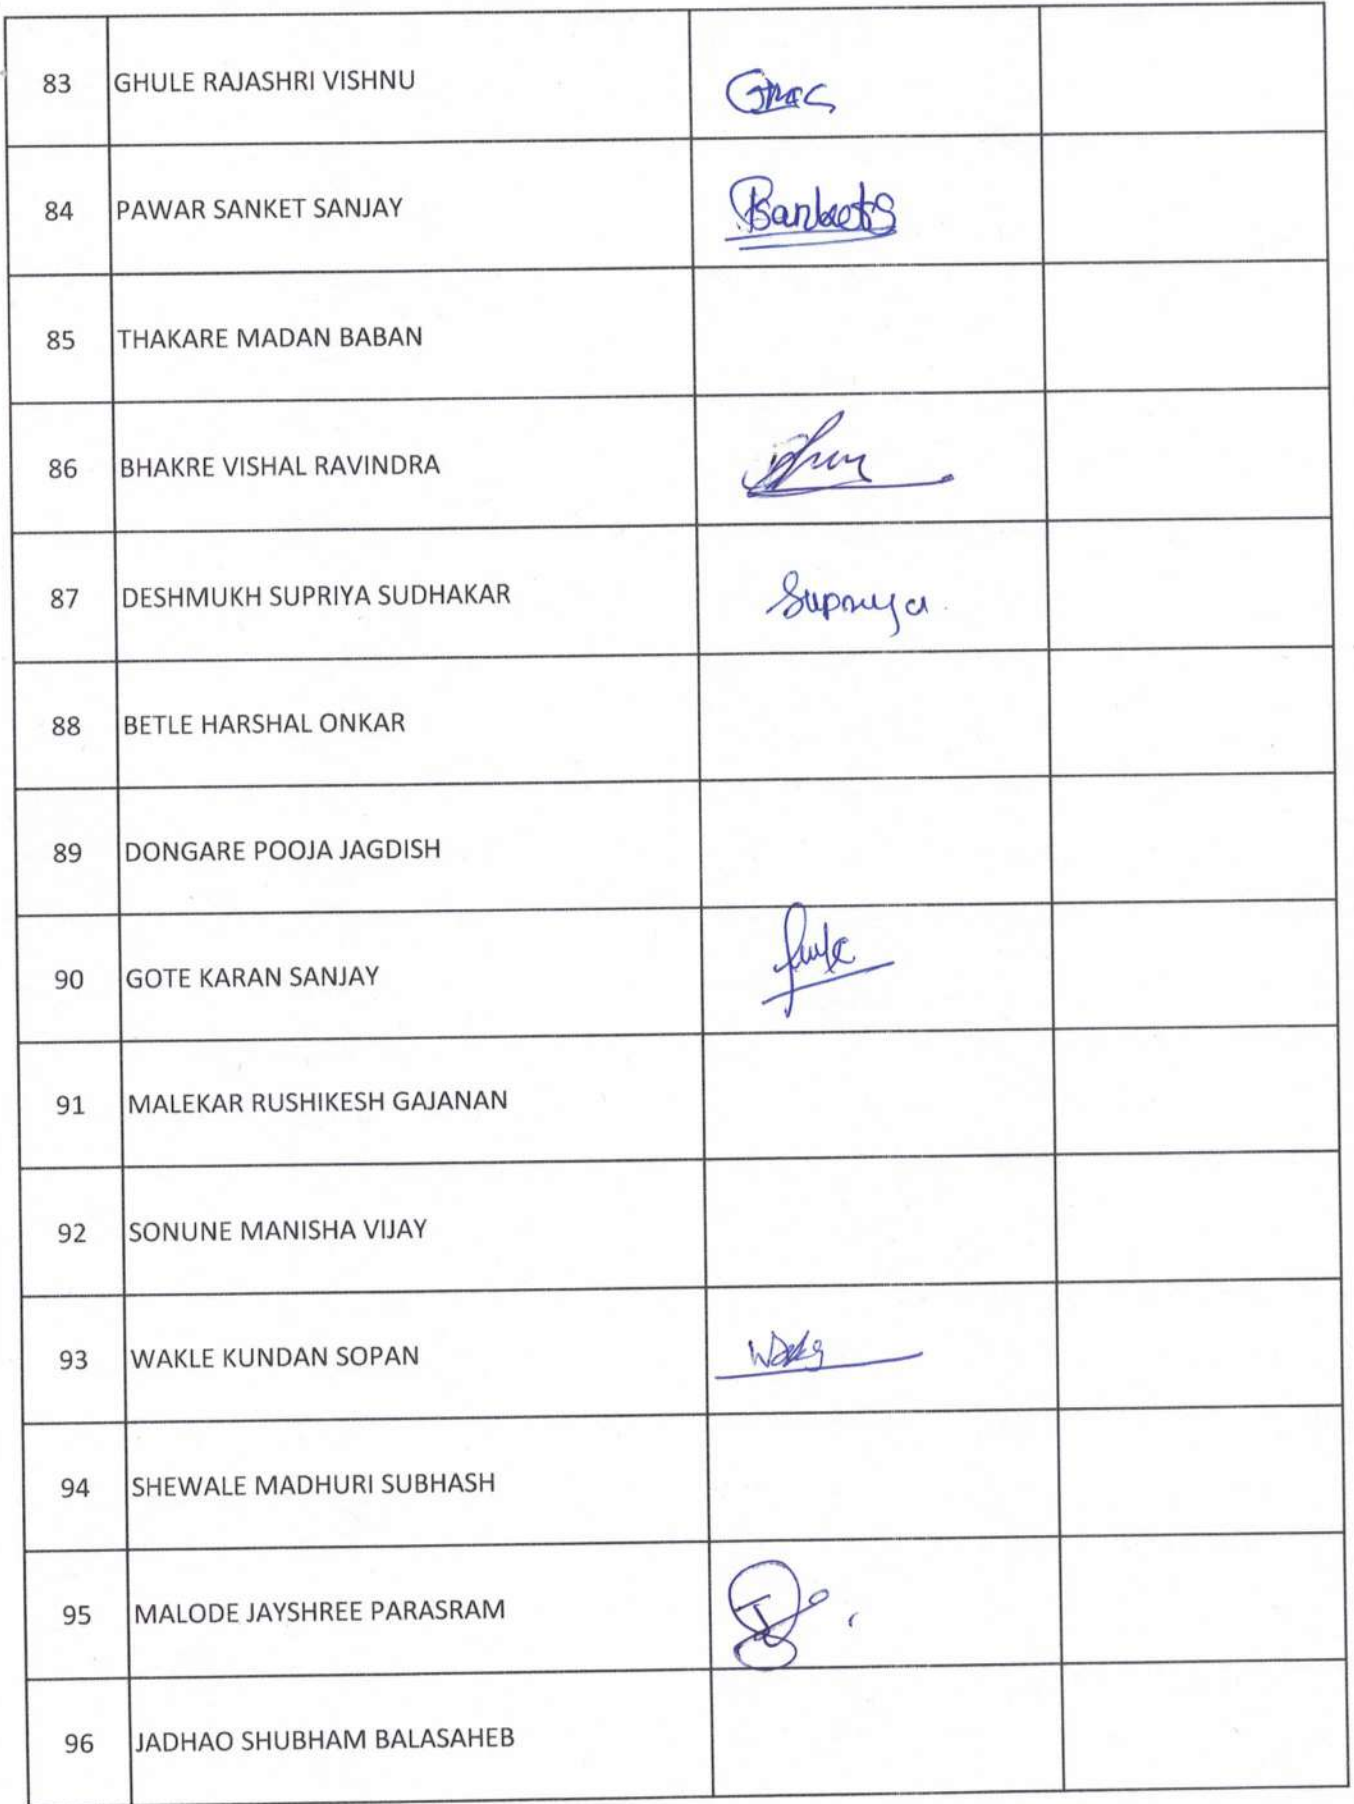 83 GHULE RAJASHRI VISHNU
84 PAWAR SANKET SANJAY
85 THAKARE MADAN BABAN
86 BHAKRE VISHAL RAVINDRA
87 DESHMUKH SUPRIYA SUDHAKAR Supriya
88 BETLE HARSHAL ONKAR
89 DONGARE POOJA JAGDISH
90 GOTE KARAN SANJAY
91 MALEKAR RUSHIKESH GAJANAN
92 SONUNE MANISHA VIJAY
93 WAKLE KUNDAN SOPAN
94 SHEWALE MADHURI SUBHASH
95 MALODE JAYSHREE PARASRAM
96 JADHAO SHUBHAM BALASAHEB